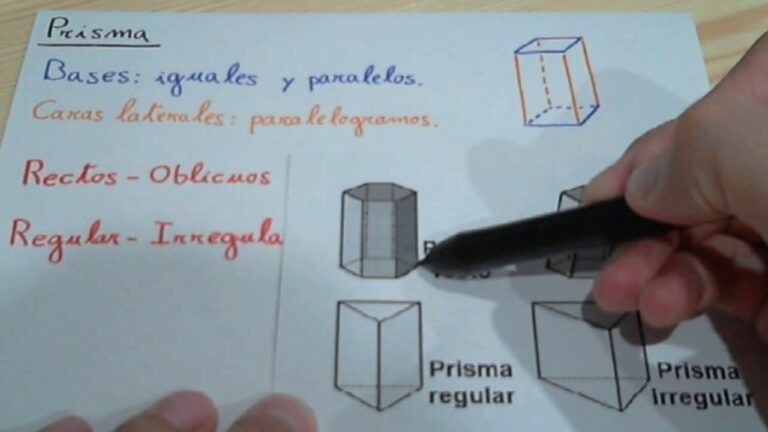 Prisma
Bases: iguales y paralelos.
Caras laterales: paralelogramos.
Rectos - Oblicuos
Regular - Irregula
Prisma
regular
Prisma
irregular